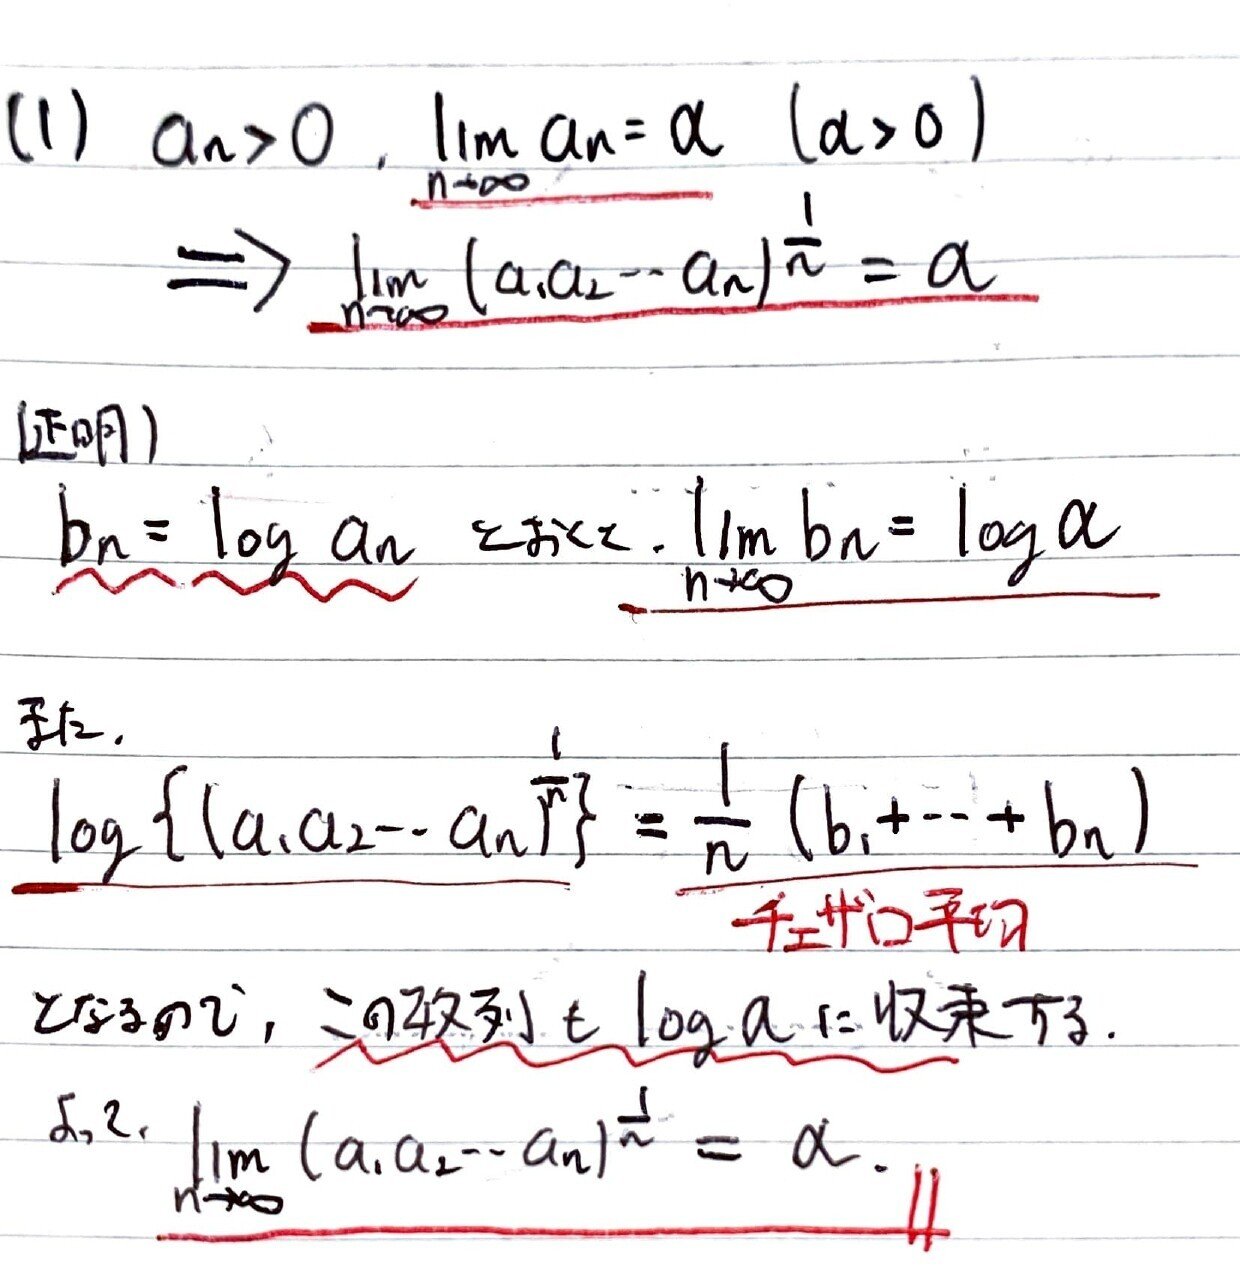 (1) an>0, lim an=α (α>0)
n→∞
⇒ lim (a₁a₂…an)^{1/n} = α
n→∞
(証明)
bn = log an とおくと. lim bn = log α
n→∞
また.
log{(a₁a₂…an)^{1/n}} = 1/n (b₁+…+bn)
チェザロ平均
となるので, この数列も log α に収束する.
よって. lim (a₁a₂…an)^{1/n} = α.
n→∞